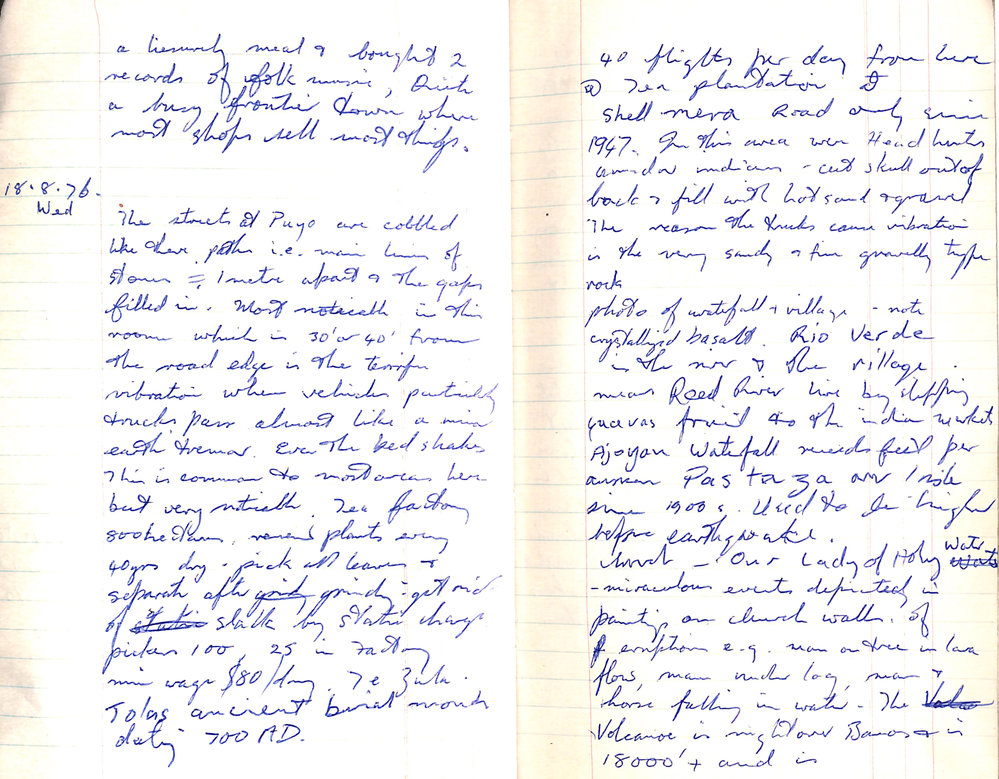 a liesurely meal & bought 2
records of folk music, Quite
a busy frontier town where
most shops sell most things.
18.8.76.
Wed
The streets at Puyo are cobbled
like there paths i.e. main lines of
stones = 1 metre apart & the gaps
filled in. Most noticable in this
room which is 30' or 40' from
the road edge is the terrific
vibration when vehicles particularly
trucks pass almost like a mini
earth tremor. Even the bed shakes
This is common to most areas here
but very noticable. Tea factory
800 hectares, renew plants every
40yrs dry - pick all leaves &
separate after grindy grindy - get rid
of static stalk by static charge
pickers 100, 25 in Factory
min wage $80/day. Te Zulu.
Tolas ancient burial mounds
dating 700 AD.
40 flights per day from here
@ Tea plantation
Shell-mera Road only since
1947. In this area were Head hunters
amador indians - cut skull out of
back & fill with hot sand & gravel
The reason the trucks cause vibration
is the very sandy & fine gravelly type
rock
photo of waterfall & village - note
crystallized basalt. Rio Verde
is the river & the village.
means Reed River live by shipping
guavas fruit to the indian markets
Ajoyan Waterfall recedes feet per
annum Pastaza over 1 mile
since 1900s. Used to be higher
before earthquake.
Church - Our Lady of Holy Water
- miraculous events depicted in
paintings on church walls. of
eruptions e.g. man on tree in lava
flow, man under log, man &
horse falling in water - The
Volcanoe is right over Banos & is
18000'+ and is